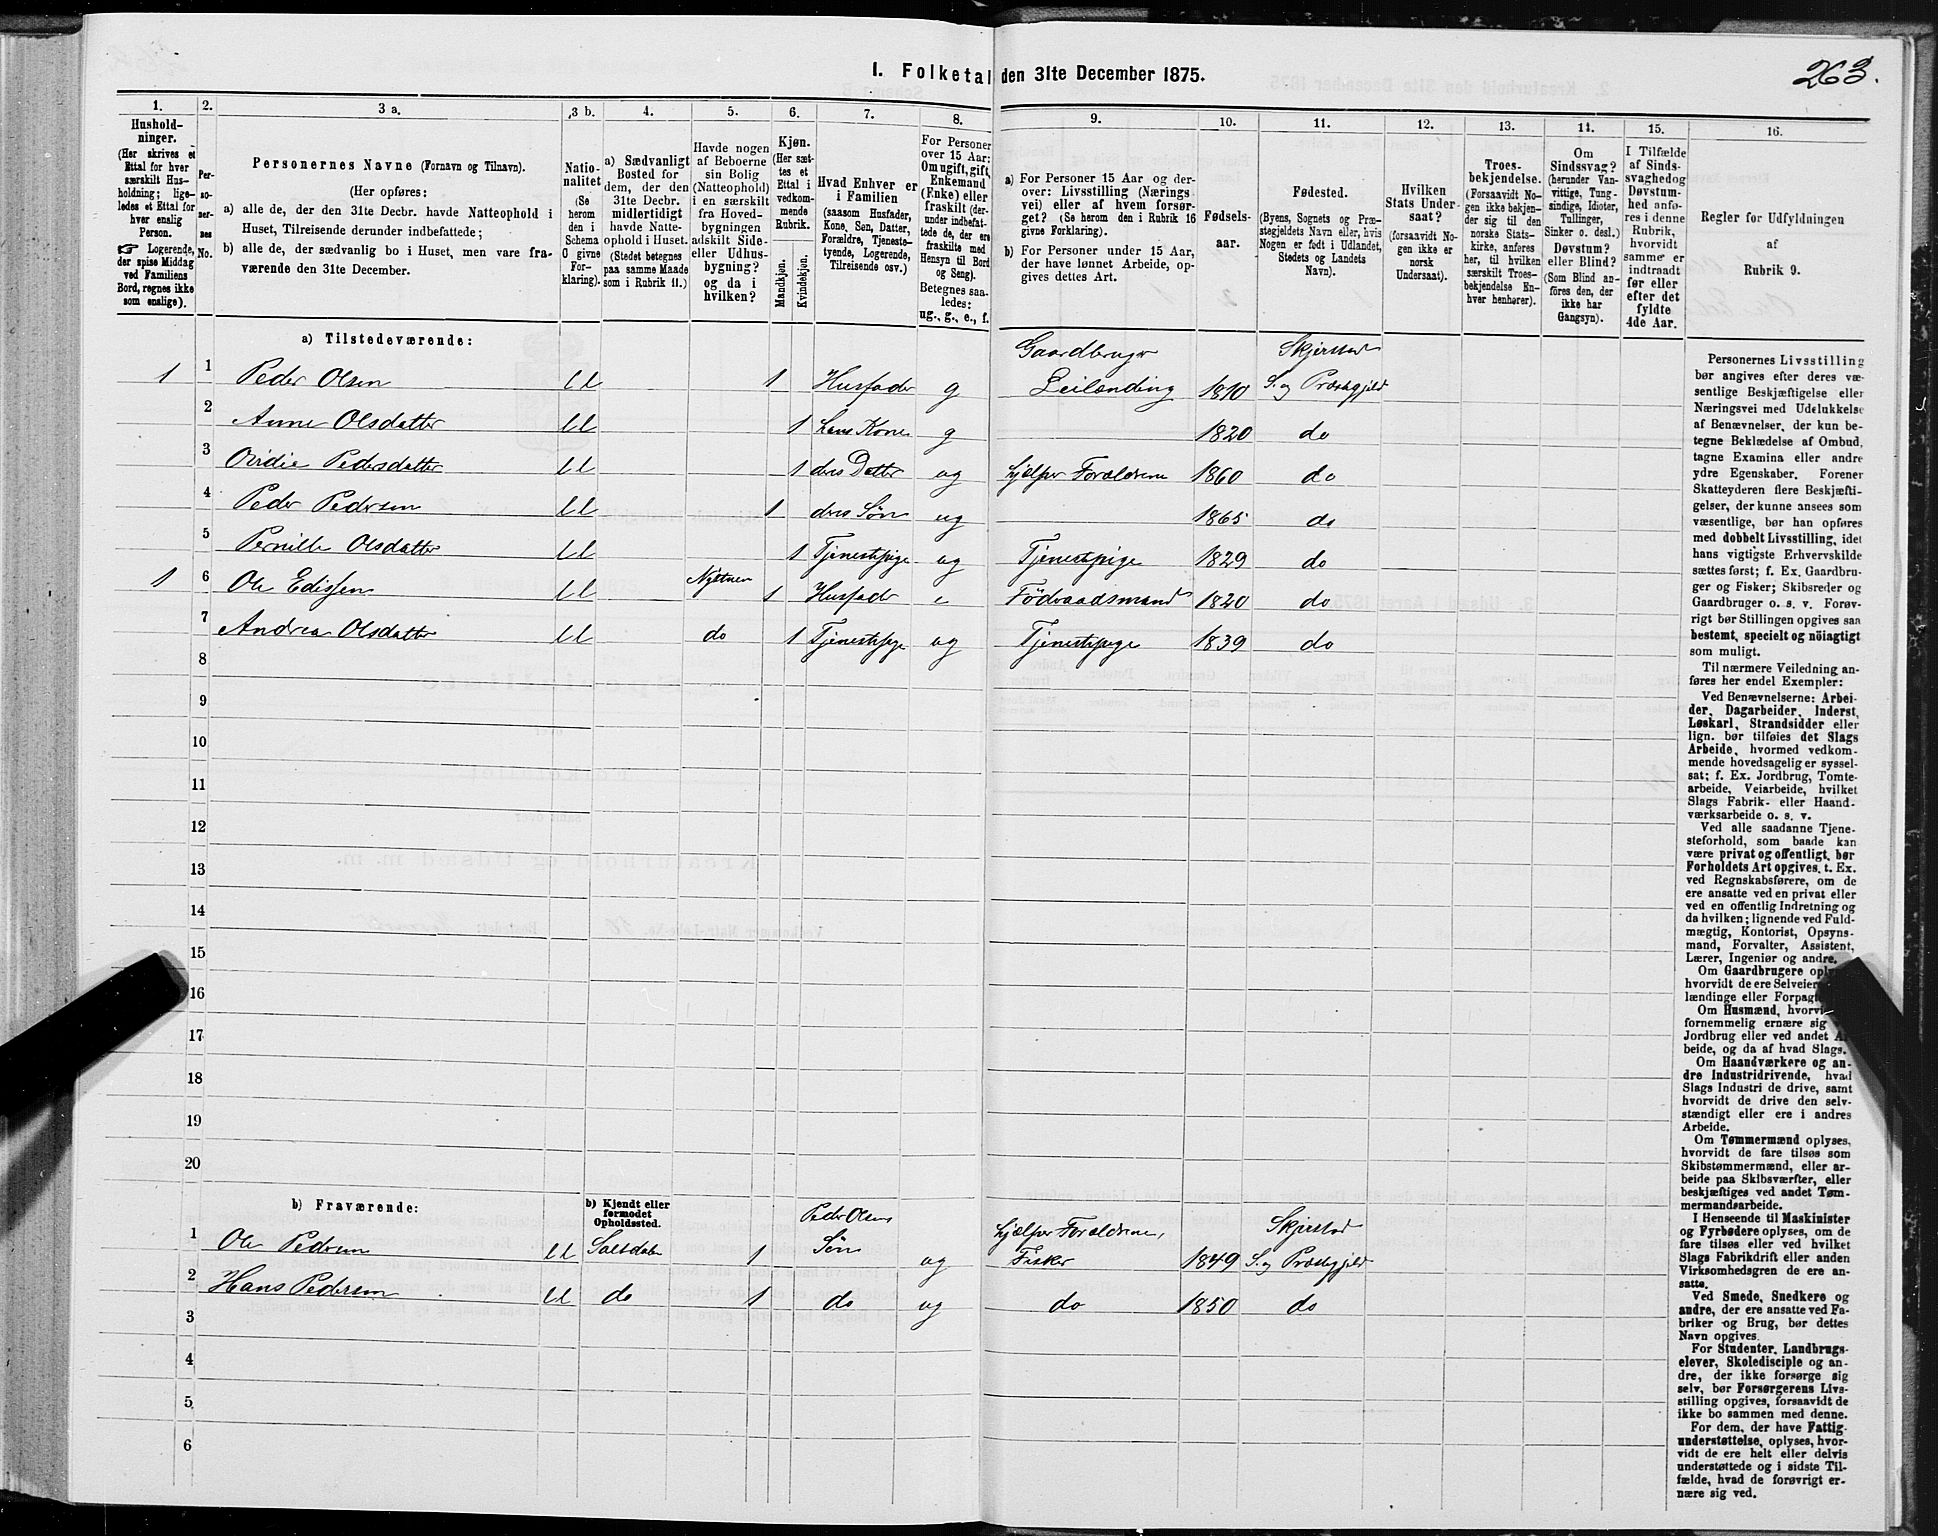 I. Folketal den 31te December 1875.
263.
1.
Hushold-
ninger.
(Her skrives et
Ettal for hver
særskilt Hus-
holdning; lige-
ledes et Ettal for
hver enslig
Person.
☞ Logerende,
der spise Middag
ved Familiens
Bord, regnes ikke
som enslige).
2.
Per-
so-
ner-
nes
No.
3 a.
Personernes Navne (Fornavn og Tilnavn).
(Her opføres:
a) alle de, der den 31te Decbr. havde Natteophold i
Huset, Tilreisende derunder indbefattede;
b) alle de, der sædvanlig bo i Huset, men vare fra-
værende den 31te December.
3 b.
Natio-
nalitet
(Se
herom
den i
Schema
O givne
For-
klaring).
4.
a) Sædvanligt
Bosted for
dem, der den
31te Decbr.
midlertidigt
havde Natte-
ophold i Huset.
(Stedet betegnes
paa samme Maade
som i Rubrik 11.)
5.
Havde nogen
af Beboerne
sin Bolig
(Natteophold)
i en særskilt
fra Hoved-
bygningen
adskilt Side-
eller Udhus-
bygning?
og da i
hvilken?
6.
Kjøn.
(Her sæt-
tes et
Ettal i
vedkom-
mende
Rubrik.
Mandkjøn.
Kvindekjøn.
7.
Hvad Enhver er
i Familien
(saasom Husfader,
Kone, Søn, Datter,
Forældre, Tjeneste-
tyende, Logerende,
Tilreisende osv.)
8.
For Personer
over 15 Aar:
Om ugift, gift,
Enkemand
(Enke) eller
fraskilt (der-
under indbefat-
tede de, der ere
fraskilte med
Hensyn til Bord
og Seng).
Betegnes saa-
ledes:
ug., g., e., f.
9.
a) For Personer 15 Aar og der-
over: Livsstilling (Nærings-
vei) eller af hvem forsør-
get? (Se herom den i Rubrik 16
givne Forklaring).
b) For Personer under 15 Aar,
der have lønnet Arbeide, op-
gives dettes Art.
10.
Fødsels-
aar.
11.
Fødested.
(Byens, Sognets og Præ-
stegjeldets Navn eller, hvis
Nogen er født i Udlandet,
Stedets og Landets
Navn).
12.
Hvilken
Stats Under-
saat?
(forsaavidt No-
gen ikke er
norsk
Undersaat).
13.
Troes-
bekjendelse.
(Forsaavidt No-
gen ikke bekjen-
der sig til den
norske Stats-
kirke, anføres
her, til hvilken
særskilt Troes-
bekjendelse En-
hver henhører).
14.
Om
Sindssvag?
(herunder Van-
vittige, Tung-
sindige, Idioter,
Tullinger,
Sinker o. desl.)
Døvstum?
eller Blind?
(Som Blind an-
føres den, der
ikke har
Gangsyn).
15.
I Tilfælde
af Sinds-
svaghed og
Døvstum-
hed anfø-
res i denne
Rubrik,
hvorvidt
samme er
indtraadt
før eller
efter det
fyldte
4de Aar.
16.
Regler for Udfyldningen
af
Rubrik 9.
a) Tilstedeværende:
1 1 Peder Olsen U 1 Husfader g Gaardbruger Leilænding 1810 Skjerstad S. og Præstegjeld
2 Anne Olsdatter U 1 hans Kone g 1820 do
3 Ovidie Pedersdatter U 1 deres Datter ug hjælper Forældrene 1860 do
4 Peder Pedersen U 1 deres Søn ug 1865 do
5 Pernille Olsdatter U 1 Tjenestepige ug Tjenestepige 1829 do
1 6 Ole Edissen U 1 Husfader e Föderaadsmand 1820 do
7 Andrea Olsdatter U do 1 Tjenestepige ug Tjenestepige 1839 do
8
9
10
11
12
13
14
15
16
17
18
19
20
b) Fraværende:
b) Kjendt eller
formodet
Opholdssted.
1 Ole Pedersen U Saltdalen 1 Peder Olsens Søn ug hjælper Forældrene, Fisker 1849 Skjerstad S. og Præstegjeld
2 Hans Pedersen U do 1 do ug do 1850 do
3
4
5
6
Personernes Livsstilling
bør angives efter deres væ-
sentlige Beskjæftigelse eller
Næringsvei med Udelukkelse
af Benævnelser, der kun be-
tegne Beklædelse af Ombud,
tagne Examina eller andre
ydre Egenskaber. Forener
Skatteyderen flere Beskjæfti-
gelser, der kunne ansees som
væsentlige, bør han opføres
med dobbelt Livsstilling, idet
hans vigtigste Erhvervskilde
sættes først; f. Ex. Gaardbru-
ger og Fisker; Skibsreder og
Gaardbruger o. s. v. Forøv-
rigt bør Stillingen opgives saa
bestemt, specielt og nöiagtigt
som muligt.
Til nærmere Veiledning an-
føres her endel Exempler:
Ved Benævnelserne: Arbei-
der, Dagarbeider, Inderst,
Løskarl, Strandsidder eller
lign. bør tilføies det Slags
Arbeide, hvormed vedkom-
mende hovedsagelig er syssel-
sat; f. Ex. Jordbrug, Tomte-
arbeide, Veiarbeide, hvilket
Slags Fabrik- eller Haand-
værksarbeide o. s. v.
Ved alle saadanne Tjene-
steforhold, som baade kan
være privat og offentligt, bør
Forholdets Art opgives, t. Ex.
ved Regnskabsførere, om de
ere ansatte ved en privat eller
ved en offentlig Indretning og
da hvilken; lignende ved Fuld-
mægtig, Kontorist, Opsyns-
mand, Forvalter, Assistent,
Lærer, Ingeniør og andre.
Om Gaardbrugere
hvorvidt de ere Selveiere
lændinge eller
Om Husmænd,
fornemmelig ernære sig
Jordbrug eller ved andet
beide, og da af hvad Slags.
Om Haandværkere og an-
dre Industridrivende, hvad
Slags Industri de drive, samt
hvorvidt de drive den selv-
stændigt eller ere i andres
Arbeide.
Om Tømmermænd oplyses,
hvorvidt de fare tilsøs som
Skibstømmermænd, eller ar-
beide paa Skibsværfter, eller
beskjæftiges ved andet Tøm-
mermandsarbeide.
I Henseende til Maskinister
og Fyrbødere oplyses, om de
fare tilsøs eller ved hvilket
Slags Fabrikdrift eller anden
Virksomhedsgren de ere an-
satte.
Ved Smede, Snedkere og
andre, der ere ansatte ved Fa-
briker og Brug, bør dettes
Navn opgives.
For Studenter, Landbrugs-
elever, Skoledisciple og an-
dre, der ikke forsørge sig
selv, bør Forsørgerens Livs-
stilling opgives, forsaavidt de
ikke bo sammen med denne.
For dem, der have Fattig-
understøttelse, oplyses, hvor-
vidt de ere helt eller delvis
understøttede og i sidste Til-
fælde, hvad de forøvrigt er-
nære sig ved.